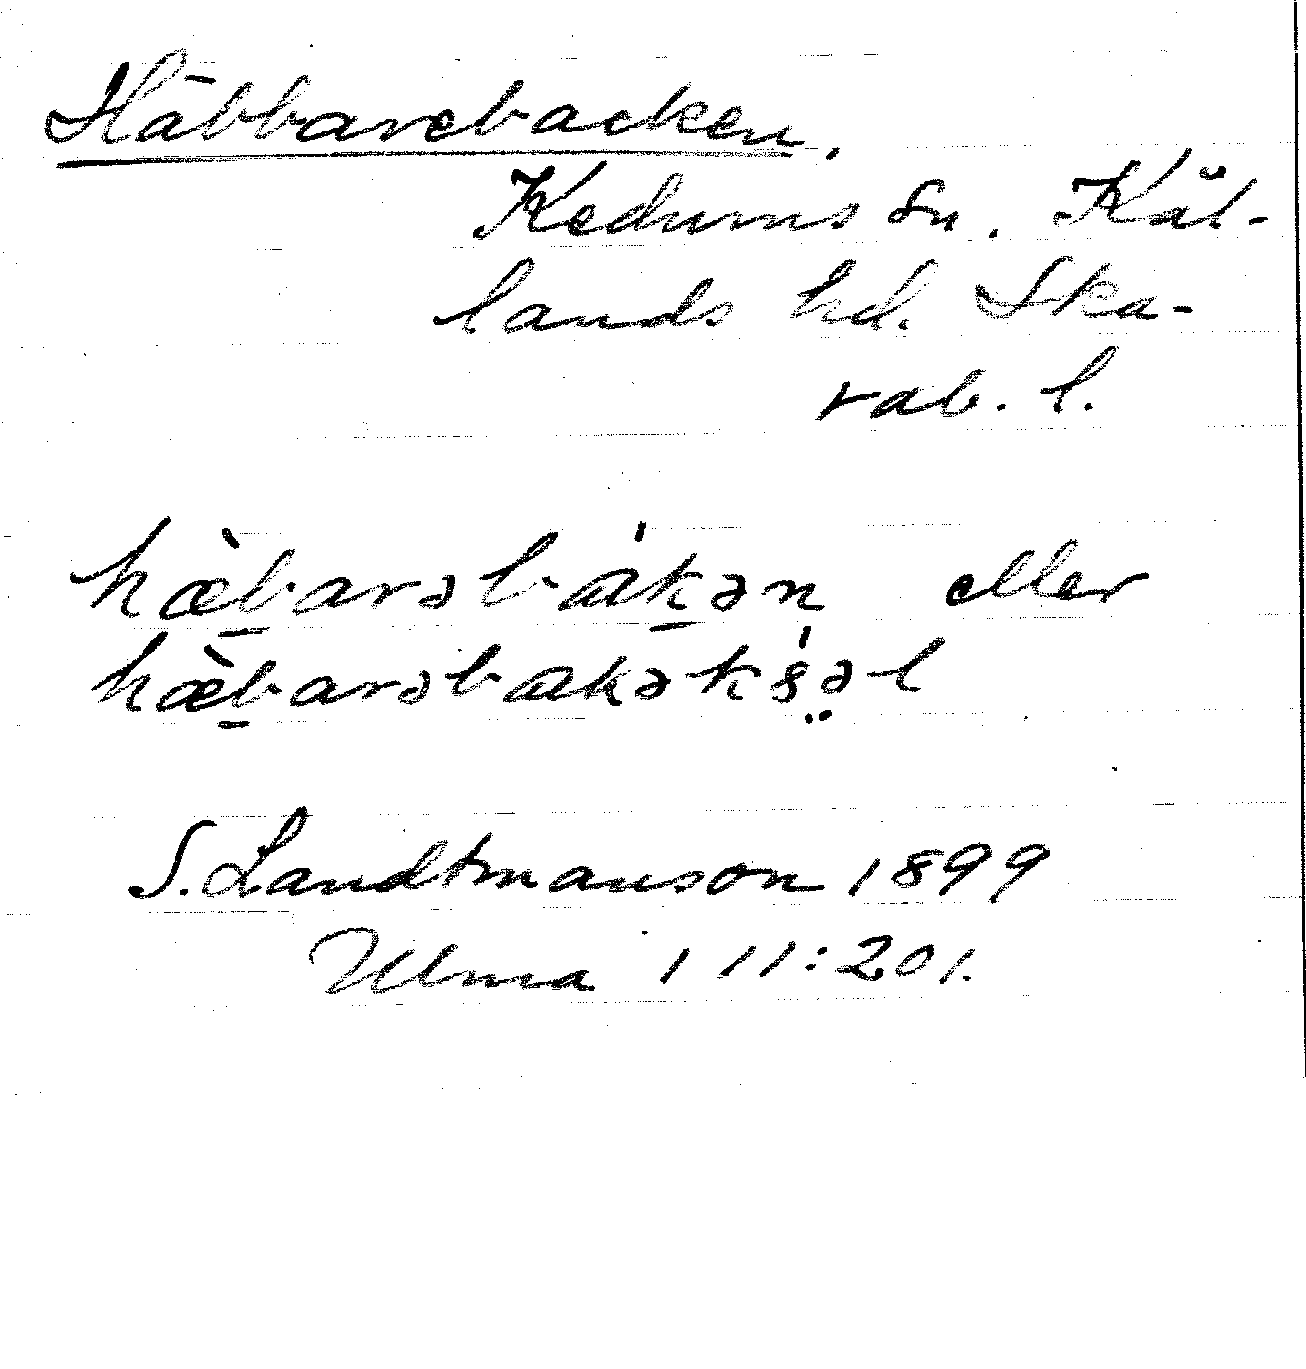 Häbbarebacken.
Kedums sn. Kål-
lands hd. Ska-
rab. l.
hæ̀b̲arəbak̲ən eller
hæ̀b̲arəbakəks̤əl
S. Landtmanson 1899
Ulma 111:201.